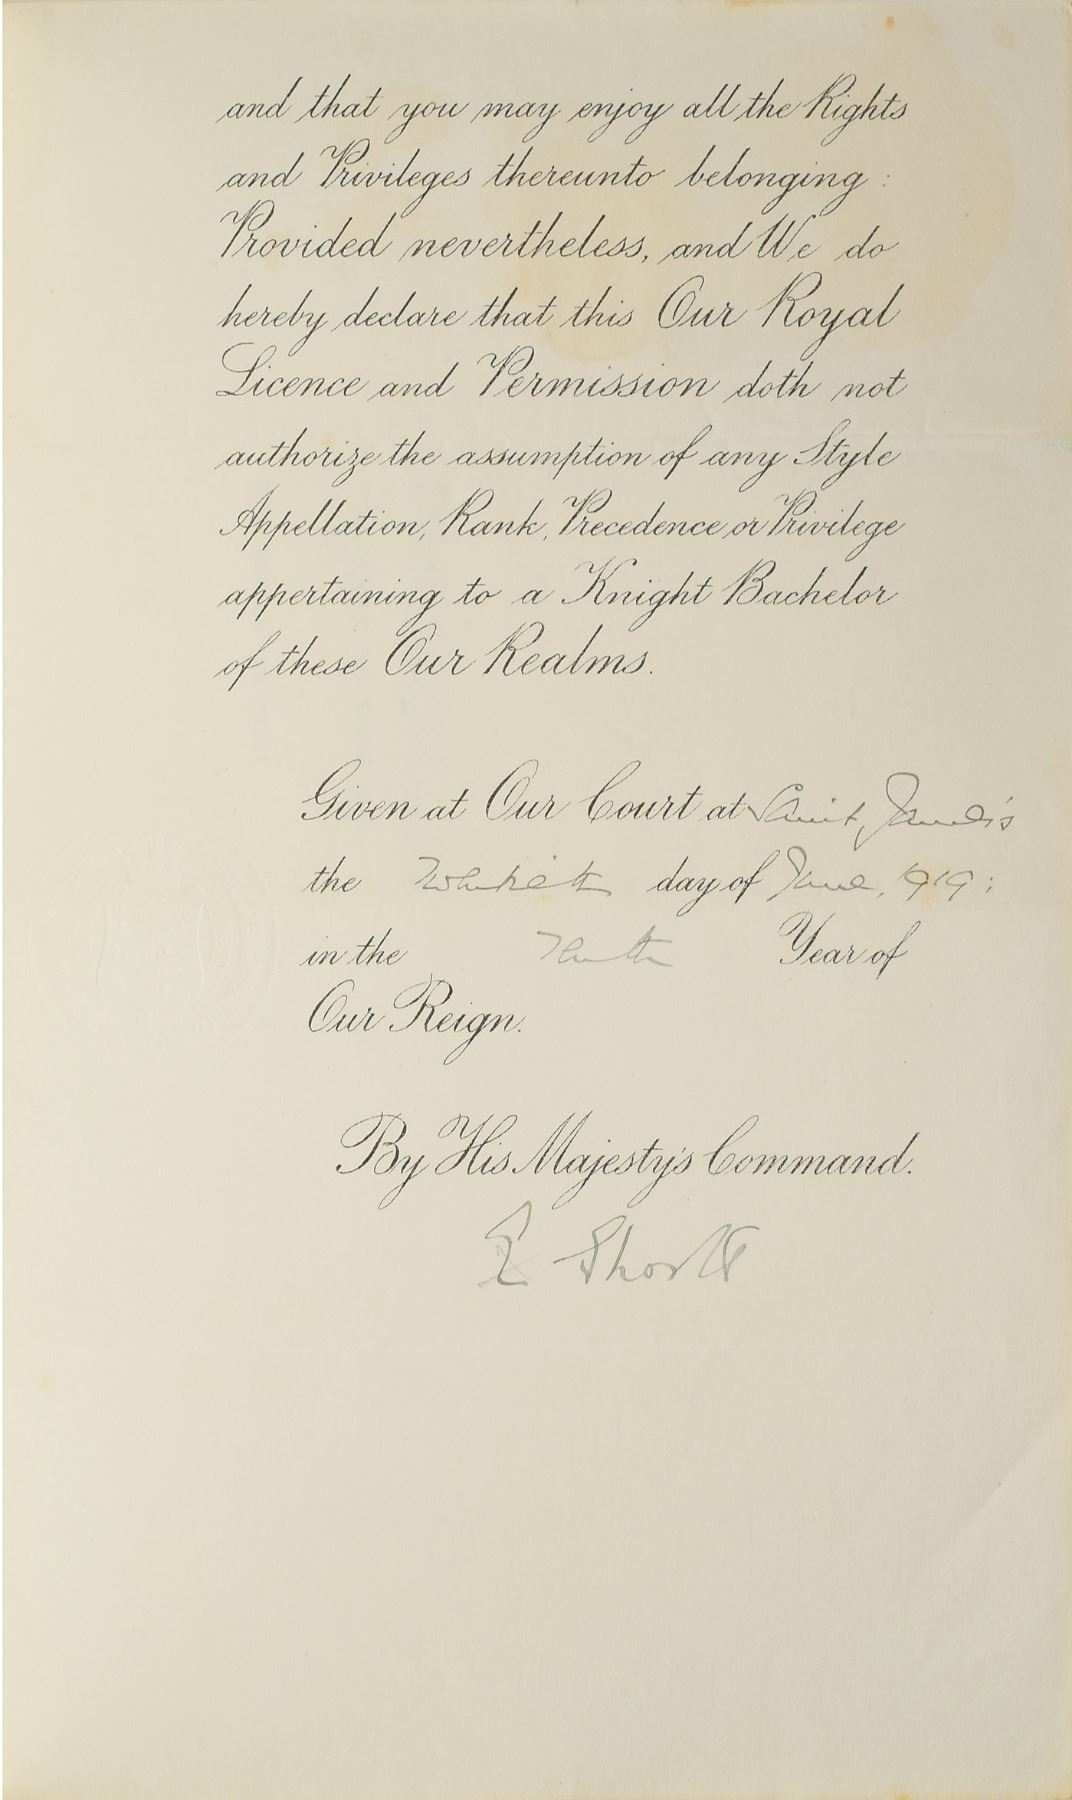 and that you may enjoy all the Rights
and Privileges thereunto belonging :
Provided nevertheless, and We do
hereby declare that this Our Royal
Licence and Permission doth not
authorize the assumption of any Style
Appellation, Rank, Precedence or Privilege
appertaining to a Knight Bachelor
of these Our Realms.
Given at Our Court at Saint James's
the day of June, 1919 :
in the Tenth Year of
Our Reign.
By His Majesty's Command.
E Shortt